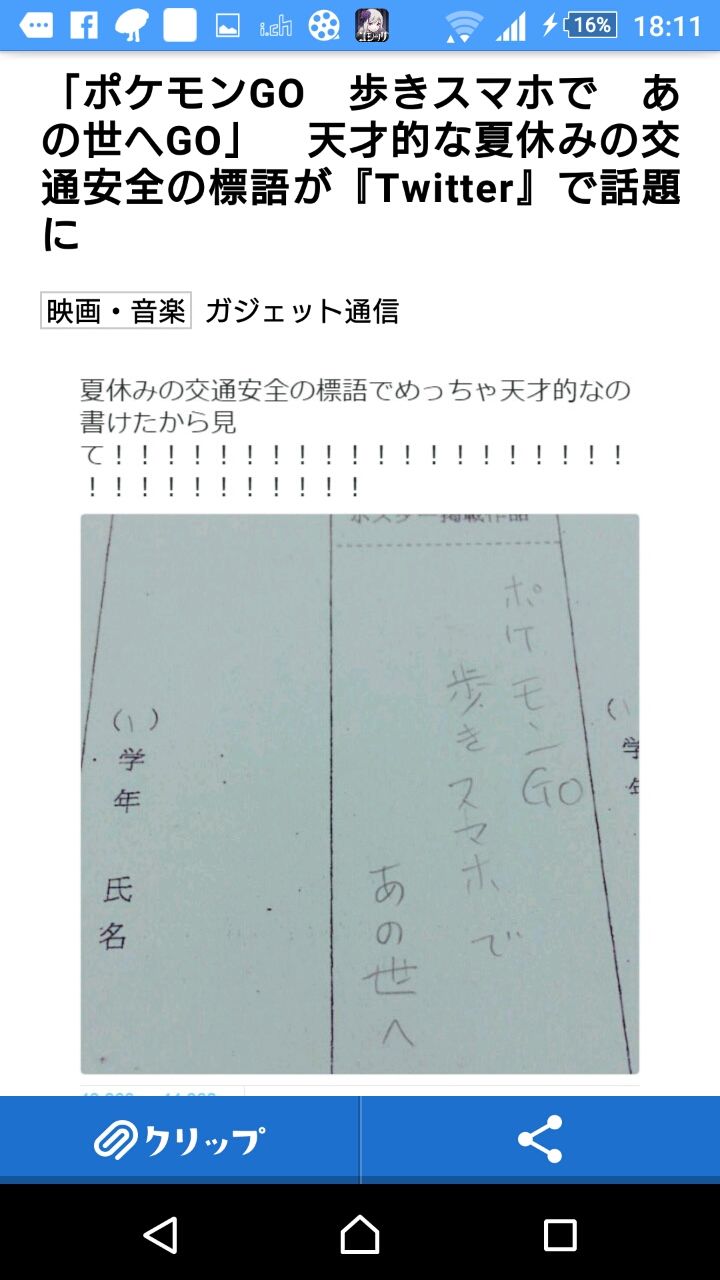 i.ch
16%
18:11
「ポケモンGO　歩きスマホで　あ
の世へGO」　天才的な夏休みの交
通安全の標語が『Twitter』で話題
に
映画・音楽 ガジェット通信
夏休みの交通安全の標語でめっちゃ天才的なの
書けたから見
て！！！！！！！！！！！！！！！！！！！！
！！！！！！！！！！！
ポスター掲載作品
ポケモンGO
歩きスマホで
あの世へ
(い)学年　氏名
(い
学年
クリップ